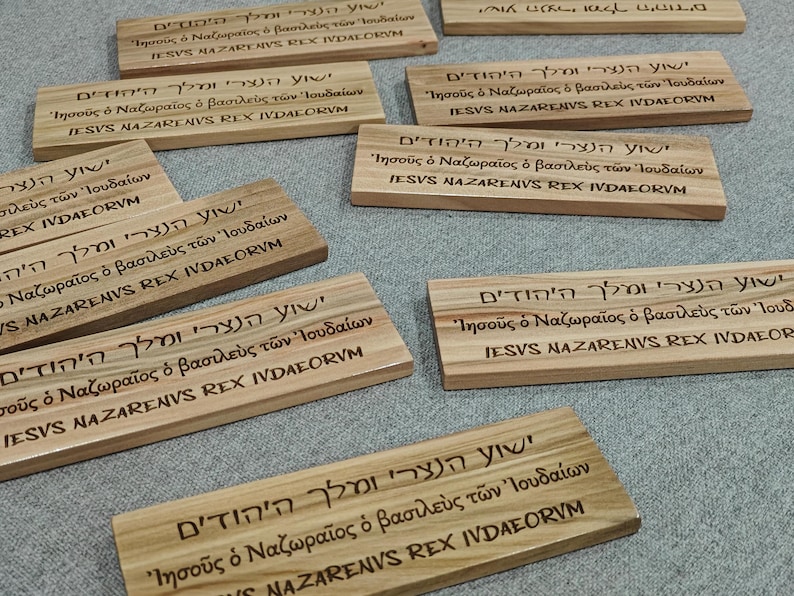 ישוע הנצרי ומלך היהודים
Ἰησοῦς ὁ Ναζωραῖος ὁ βασιλεὺς τῶν Ἰουδαίων
IESVS NAZARENVS REX IVDAEORVM
ישוע הנצרי ומלך היהודים
Ἰησοῦς ὁ Ναζωραῖος ὁ βασιλεὺς τῶν Ἰουδαίων
IESVS NAZARENVS REX IVDAEORVM
ישוע הנצרי ומלך היהודים
Ἰησοῦς ὁ Ναζωραῖος ὁ βασιλεὺς τῶν Ἰουδαίων
IESVS NAZARENVS REX IVDAEORVM
ישוע הנצרי ומלך היהודים
Ἰησοῦς ὁ Ναζωραῖος ὁ βασιλεὺς τῶν Ἰουδαίων
IESVS NAZARENVS REX IVDAEORVM
ישוע הנצרי
τῶν Ἰουδαίων
REX IVDAEORVM
ישוע הנצרי ומלך היהודים
Ναζωραῖος ὁ βασιλεὺς τῶν Ἰουδαίων
NAZARENVS REX IVDAEORVM
ישוע הנצרי ומלך היהודים
ὁ Ναζωραῖος ὁ βασιλεὺς τῶν Ἰουδαίων
IESVS NAZARENVS REX IVDAEORVM
ישוע הנצרי ומלך היהודים
Ἰησοῦς ὁ Ναζωραῖος ὁ βασιλεὺς τῶν
IESVS NAZARENVS REX IVDAEORVM
ישוע הנצרי ומלך היהודים
Ἰησοῦς ὁ Ναζωραῖος ὁ βασιλεὺς τῶν Ἰουδαίων
NAZARENVS REX IVDAEORVM